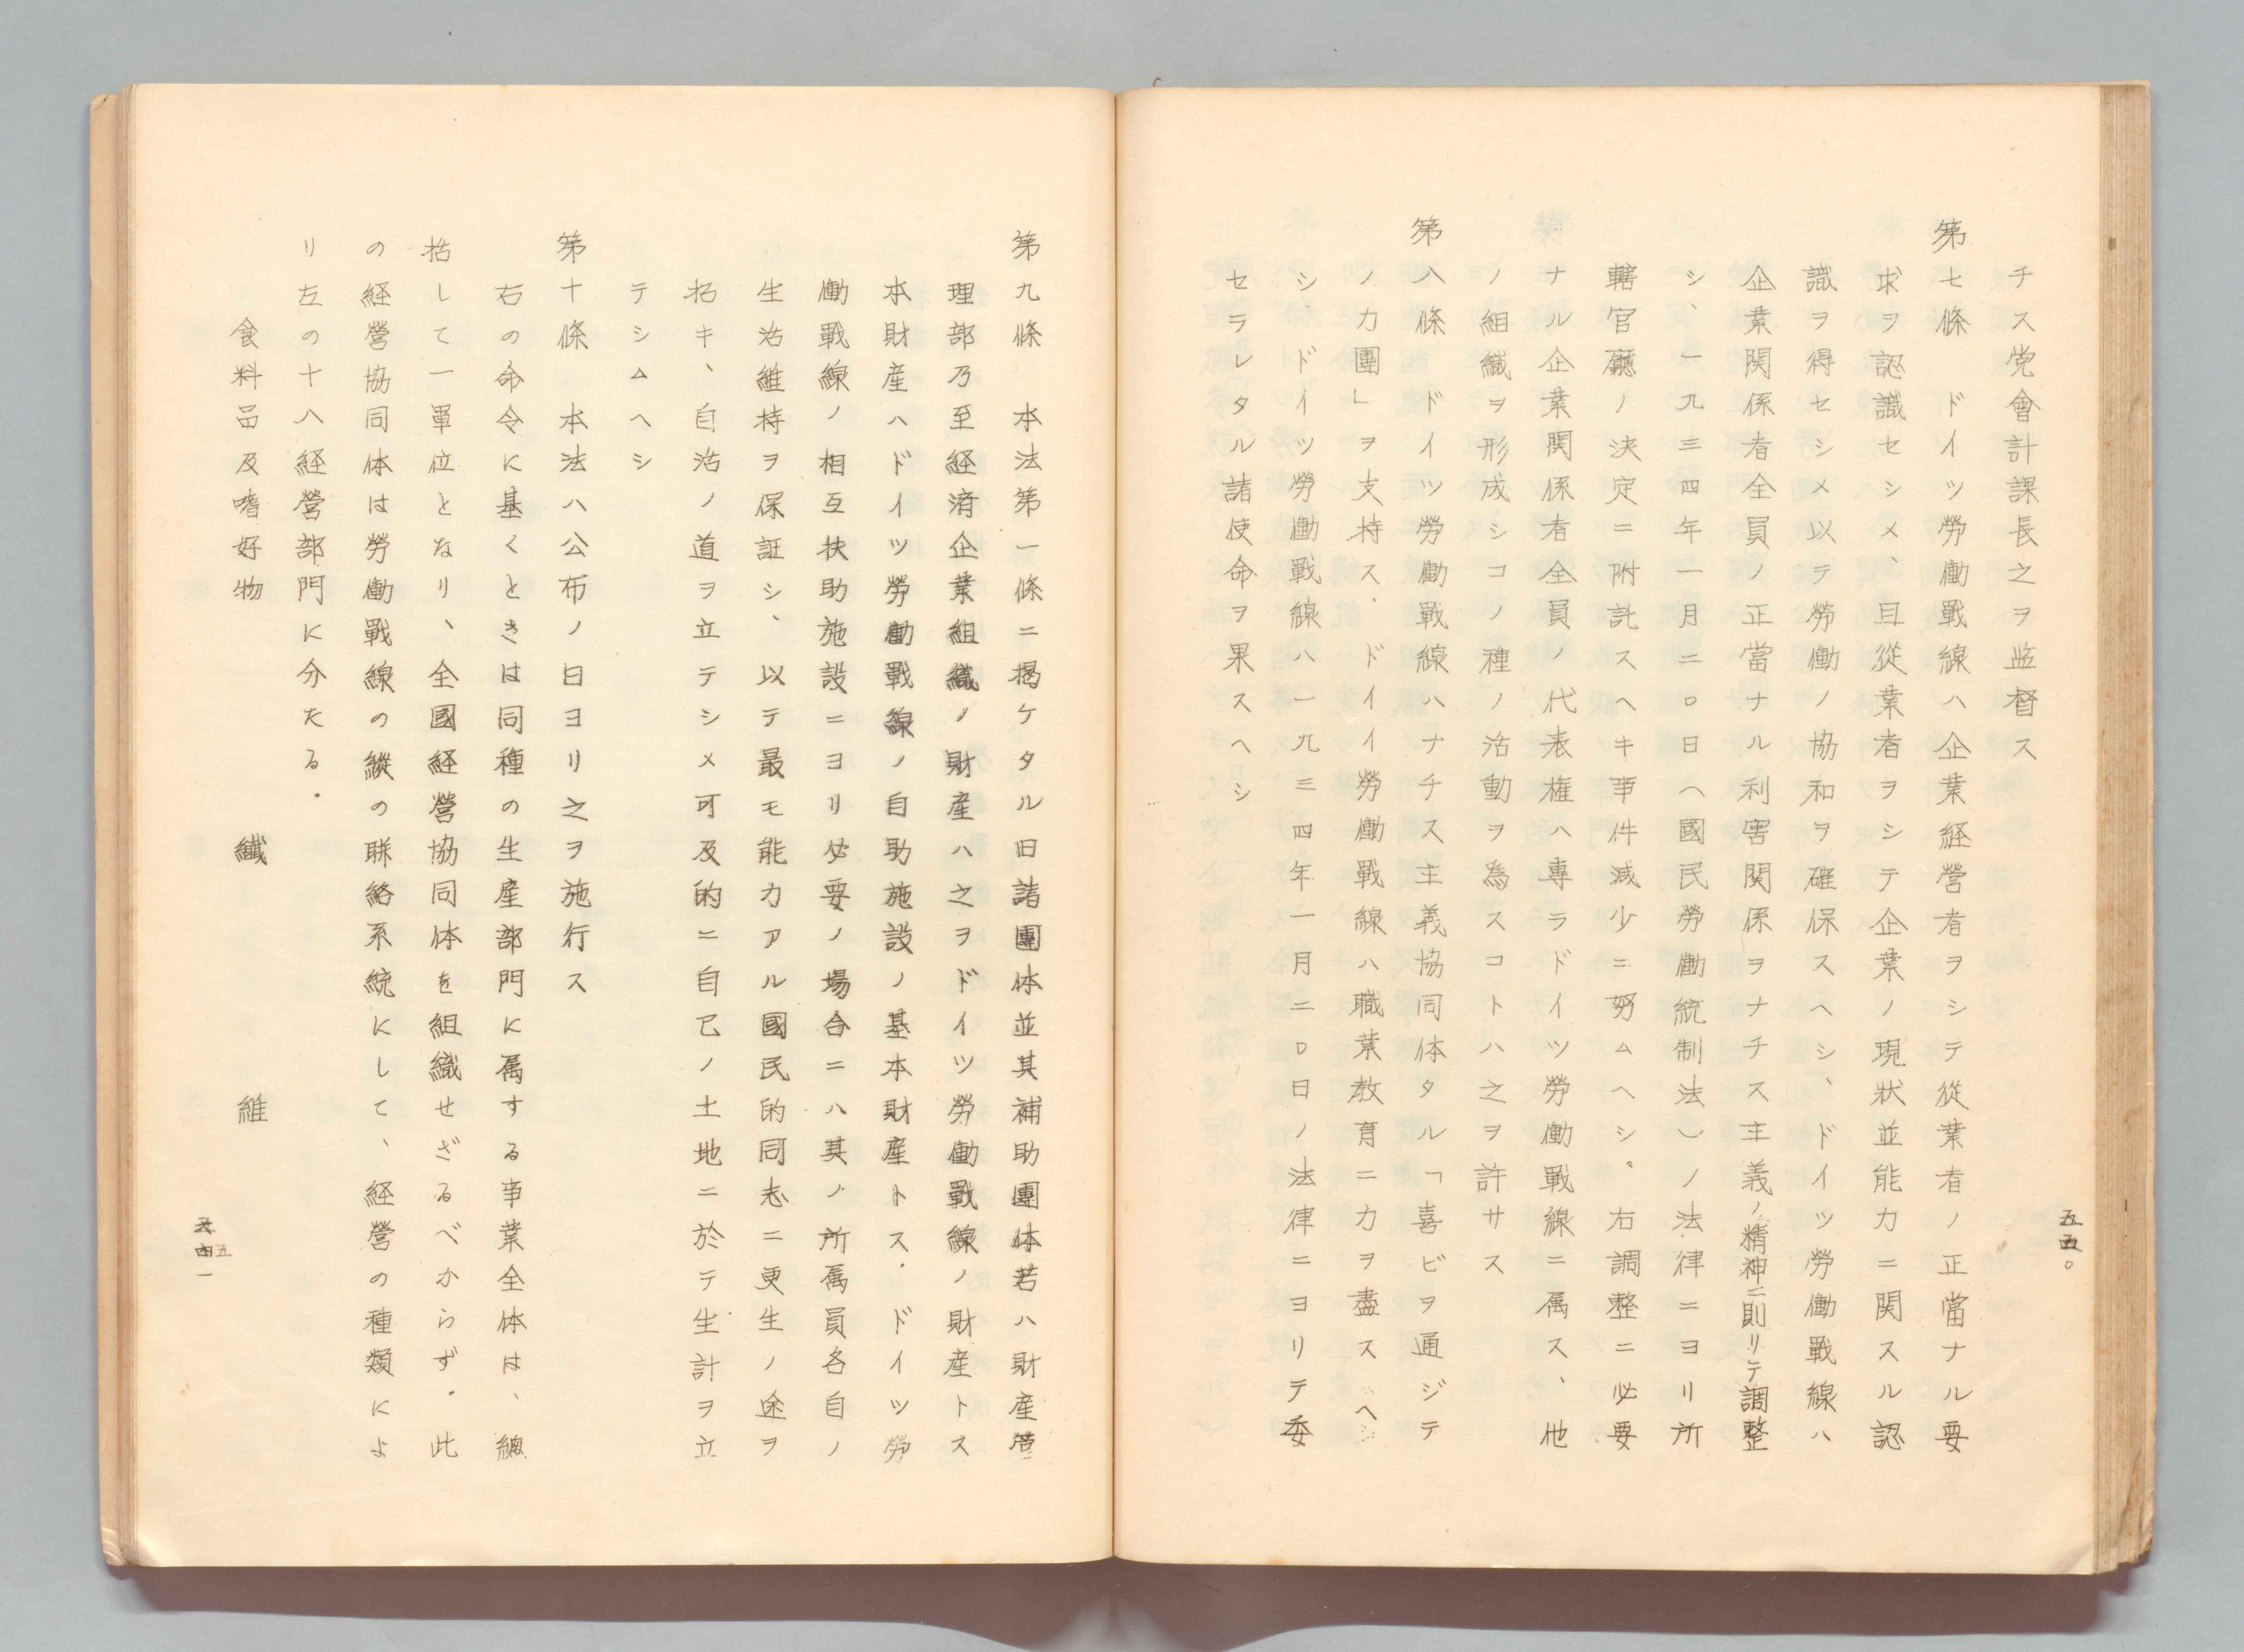 チス党會計課長之ヲ監督ス
第七條　ドイツ勞働戰線ハ企業経營者ヲシテ從業者ノ正當ナル要
求ヲ認識セシメ、且從業者ヲシテ企業ノ現狀並能力ニ関スル認
識ヲ得セシメ以テ勞働ノ協和ヲ確保スヘシ、ドイツ勞働戰線ハ
企業関係者全員ノ正當ナル利害関係ヲナチス主義ノ精神ニ則リテ調整
シ、一九三四年一月二〇日ヘ國民勞働統制法）ノ法律ニヨリ所
轄官廳ノ決定ニ附託スヘキ事件減少ニ努ムヘシ。右調整ニ必要
ナル企業関係者全員ノ代表権ハ專ラドイツ勞働戰線ニ属ス、他
ノ組織ヲ形成シコノ種ノ活動ヲ為スコトハ之ヲ許サス
第八條　ドイツ勞働戰線ハナチス主義協同体タル「喜ビヲ通ジテ
ノ力團」ヲ支持ス、ドイイ勞働戰線ハ職業教育ニ力ヲ盡スヘシ
シ、ドイツ勞働戰線ハ一九三四年一月二〇日ノ法律ニヨリテ委
セラレタル諸使命ヲ果スヘシ
五五〇
第九條　本法第一條ニ揭ケタル旧諸團体並其補助團体若ハ財産管
理部乃至経済企業組織ノ財産ハ之ヲドイツ勞働戰線ノ財産トス
本財産ハドイツ勞働戰線ノ自助施設ノ基本財産トス．ドイツ勞
働戰線ノ相互扶助施設ニヨリ必要ノ場合ニハ其ノ所属員各自ノ
生活維持ヲ保証シ、以テ最モ能力アル國民的同志ニ更生ノ途ヲ
拓キ、自活ノ道ヲ立テシメ可及的ニ自己ノ土地ニ於テ生計ヲ立
テシムヘシ
第十條　本法ハ公布ノ日ヨリ之ヲ施行ス
右の命令に基くときは同種の生産部門に属する事業全体は、總
括して一單位となり、全國経營協同体を組織せざるべからず．此
の経營協同体は勞働戰線の縱の聯絡系統にして、経營の種類によ
り左の十八経營部門に分たる．
食料品及嗜好物　　纖　　維
五一